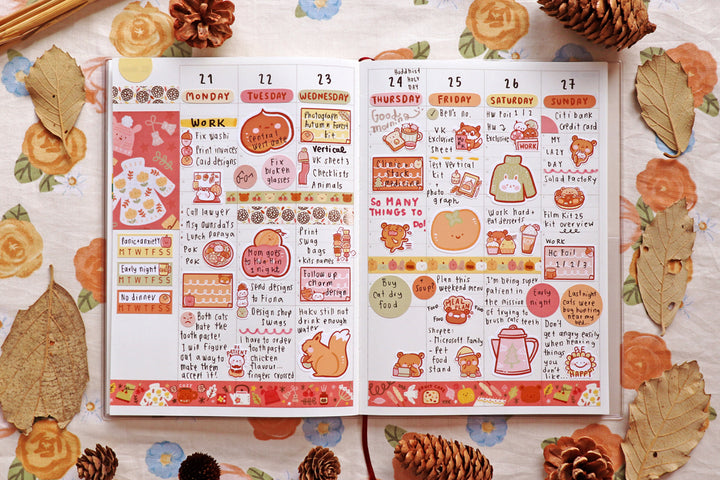 21
MONDAY
WORK
Fix washi
Print invoices
Card designs
Call lawyer
Msg Owusdays
Lunch Papaya
Pok
Pok
Both cats
hate the
toothpaste!
I will figure
out a way to
make them
accept it!
BE
PATIENT
Panic+anxiety
MTWTFSS
Early night
MTWTFSS
No dinner
MTWTFSS
22
TUESDAY
Central
West Gate
Fix
broken
glasses
Mom goes
to Hua Hin
1 night
Send designs
to Fiona
Design shop
swags
I have to order
toothpaste
chicken
flavour
fingers crossed
23
WEDNESDAY
Photograph
Autumn & Forest
Kit
Vertical
VK sheet 3
Checklists
Animals
Print
Swag
Bags
+ kits names
Follow up
charm
design
Haku still not
drink enough
water
24
THURSDAY
Buddhist
Holy
Day
Good
morning
SO MANY
THINGS TO
DO
Buy
Cat dry
food
Soup!
Shopee:
- Microsoft Family
- Pet
food
stand
25
FRIDAY
Bell's no.
VK
Exclusive
Sheet
Test Vertical
kit +
photo
graph
Plan this
weekend menu
MEAL
PLAN
26
SATURDAY
HW Pair 1 / 2
HW
Exclusive
WORK
Work hard +
eat desserts
I'm being super
patient in
the mission
of trying to
brush cats teeth
27
SUNDAY
Citi bank
Credit card
MY
LAZY
DAY
Salad Factory
Film Kit 25
kit overview
WORK
HC Pair
1 / 2 / 3
Early
night
Last night
cats were
bug hunting
near my
bed
Don't get
angry easily
when hearing
things
you
don't
like..
BE
HAPPY